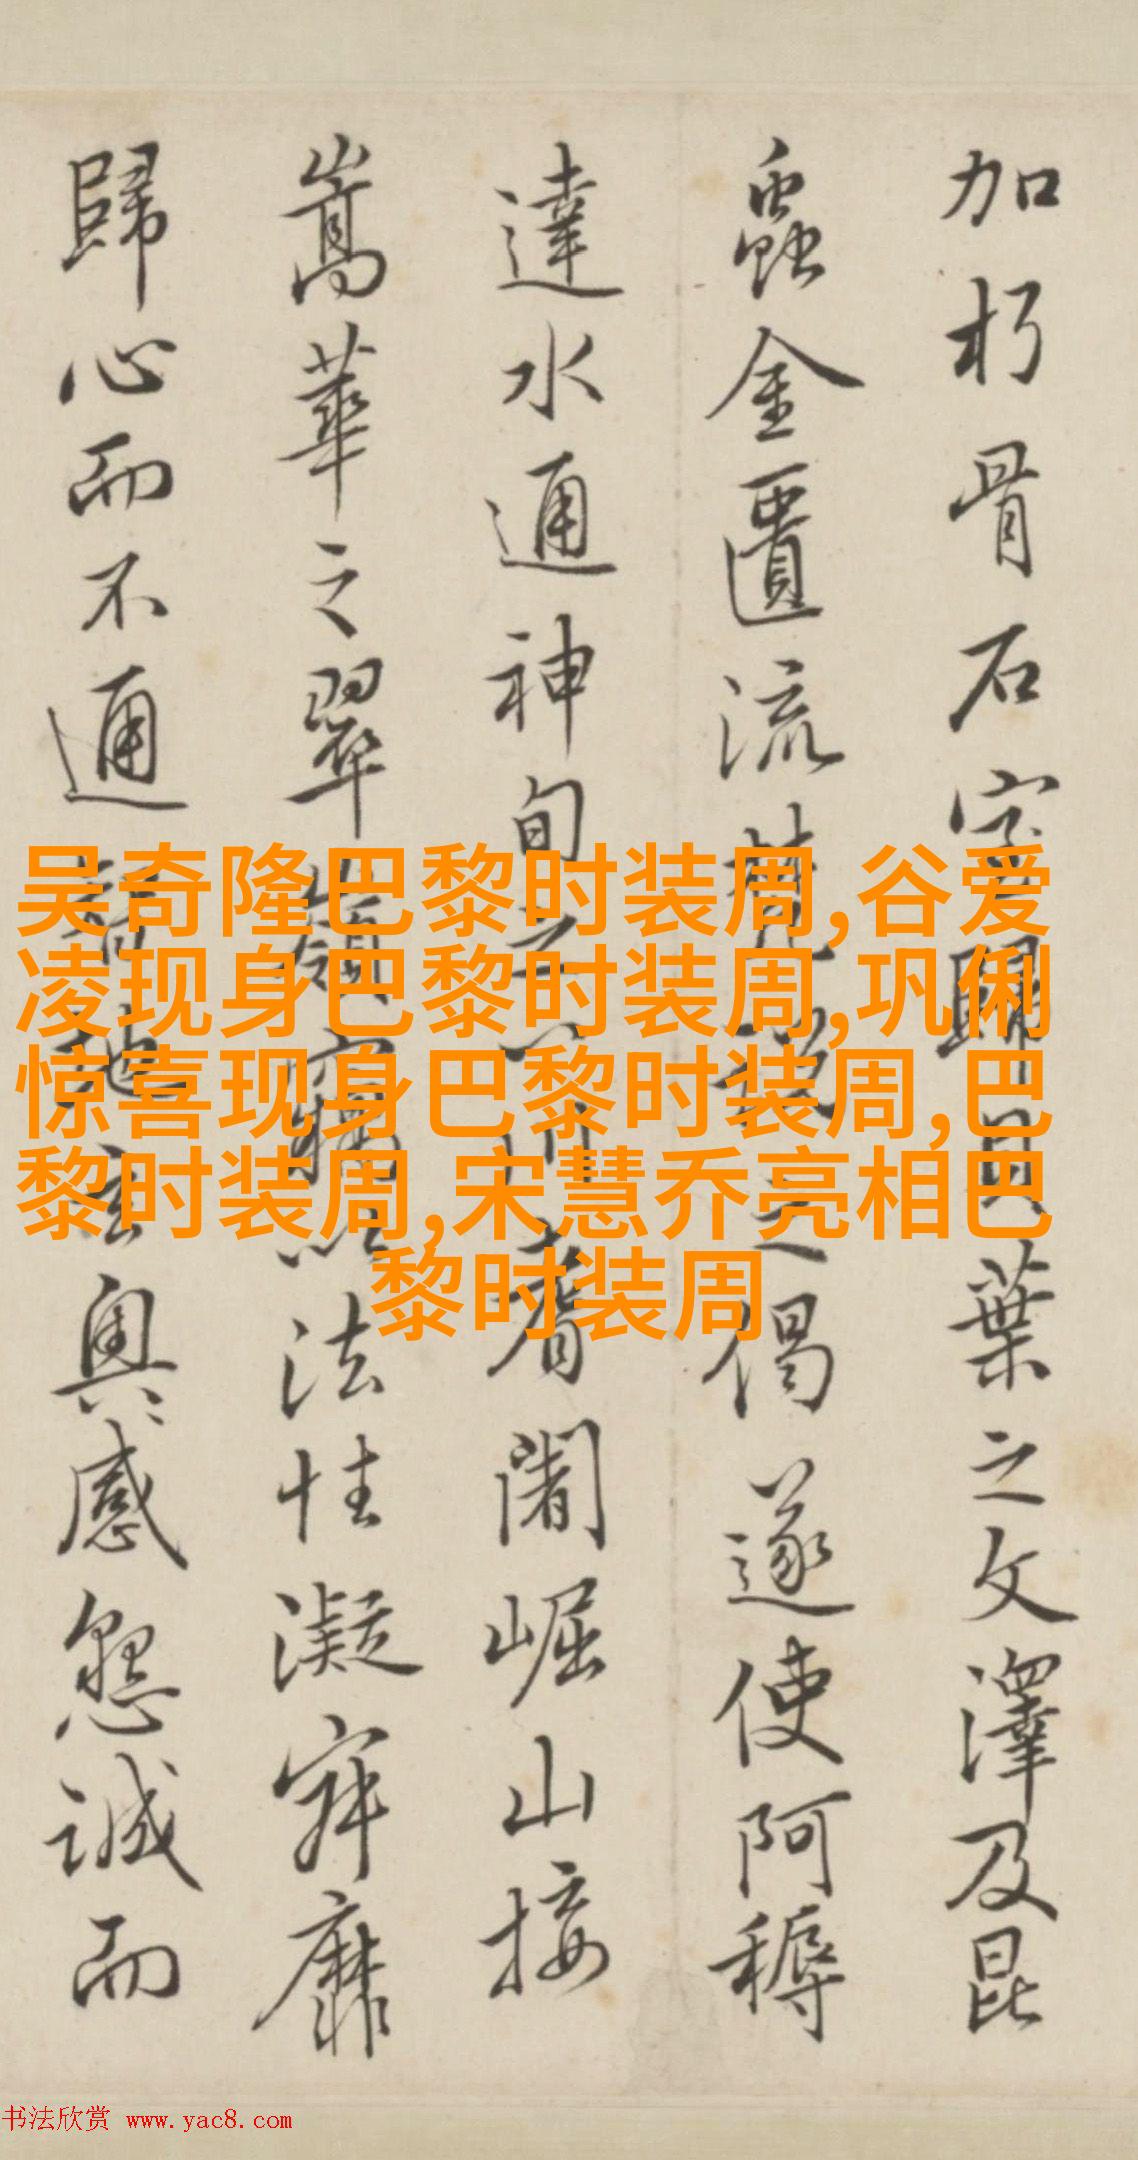 加朽骨石室歸貝葉之文澤及昆
蟲金匱流梵說之偈遂使阿耨
達水通神甸之八川耆闍崛山接
嵩華之翠嶺竊以法性凝寂靡
歸心而不通智地玄奧感懇誠而
吴奇隆巴黎时装周,谷爱
凌现身巴黎时装周,巩俐
惊喜现身巴黎时装周,巴
黎时装周,宋慧乔亮相巴
黎时装周
书法欣赏 www.yac8.com